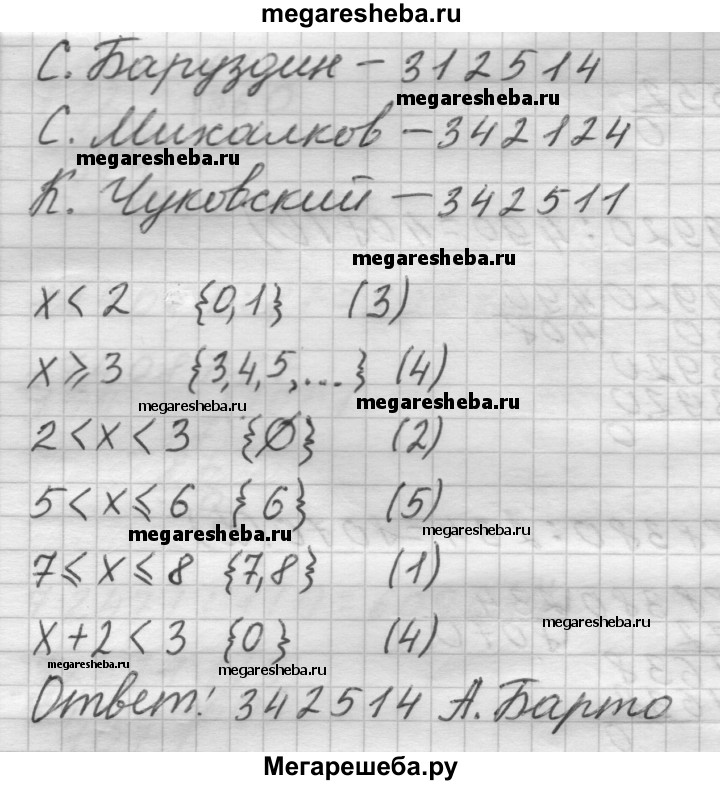 megaresheba.ru
С. Баруздин – 312514
megaresheba.ru
С. Михалков – 342124
megaresheba.ru
К. Чуковский – 342511
megaresheba.ru
x < 2 {0,1} (3)
x ⩾ 3 {3,4,5,...} (4)
megaresheba.ru megaresheba.ru
2 < x < 3 {Ø} (2)
5 < x ⩽ 6 {6} (5)
megaresheba.ru megaresheba.ru
7 ⩽ x ⩽ 8 {7,8} (1)
megaresheba.ru
x + 2 < 3 {0} (4)
megaresheba.ru megaresheba.ru
Ответ: 342514 А. Барто
Мегарешеба.ру